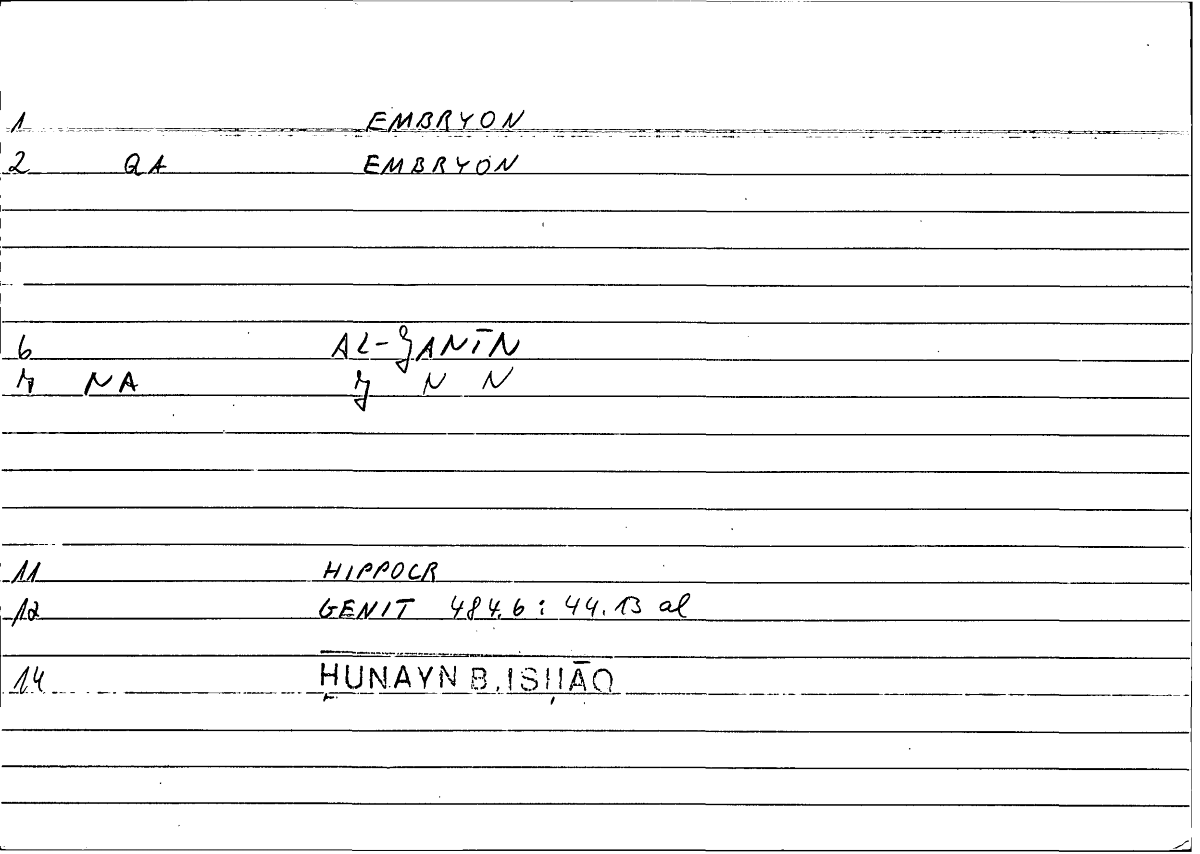 1 EMBRYON
2 QA EMBRYON
6 AL-ǦANĪN
7 NA Ǧ N N
11 HIPPOCR
12 GENIT 484.6 : 44.13 al
14 ḤUNAYN B. ISḤĀQ